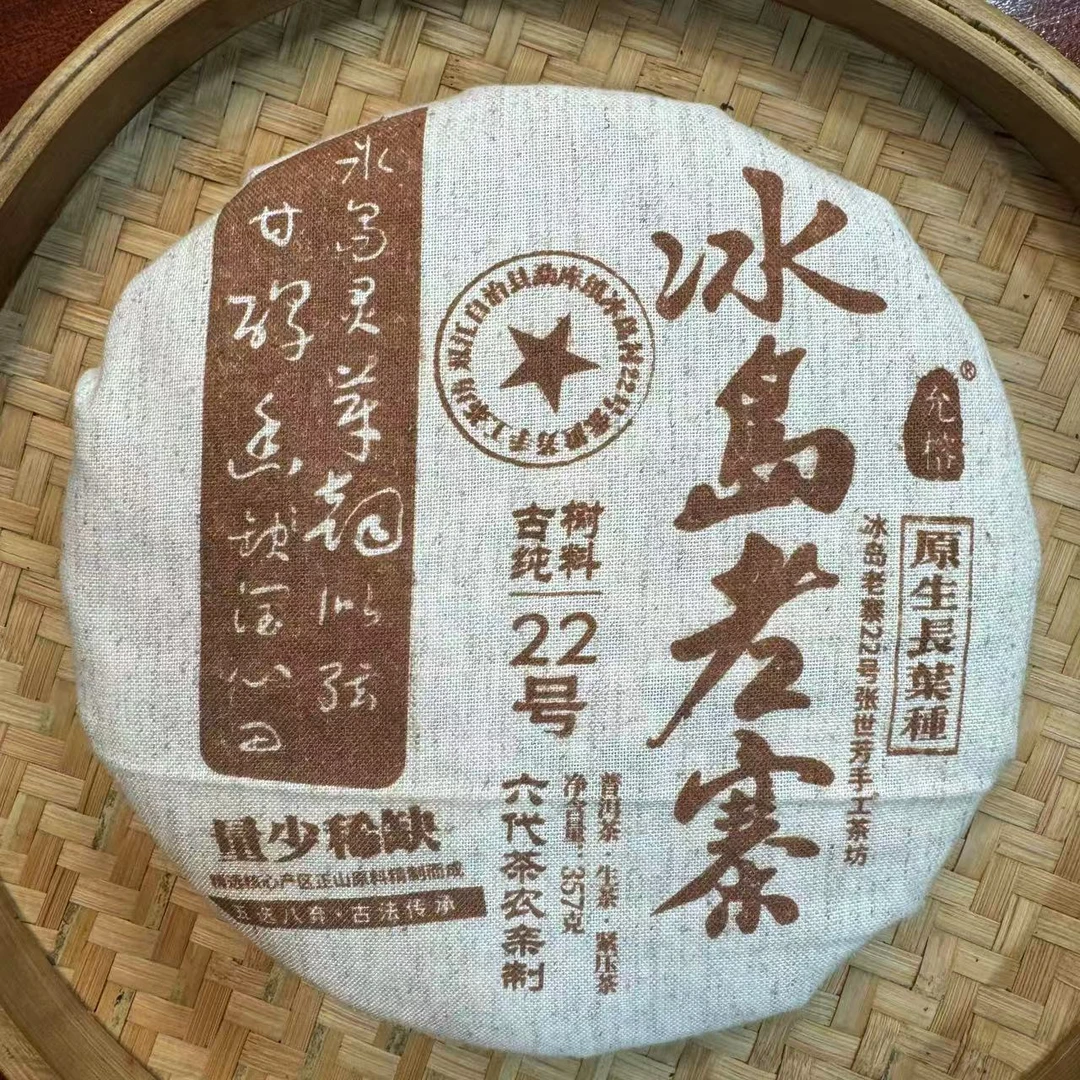 冰島老寨
允樁®
原生長葉種
冰岛老寨22号张世芳手工茶坊
双江自治县勐库镇冰岛村22号张世芳手工茶坊
古树
纯料
22
号
普洱茶·生茶·紧压茶
净含量:357克
六代茶农亲制
冰岛灵芽韵似弦
甘醇幽锁润心田
量少稀缺
精选核心产区正山原料精制而成
古法传承